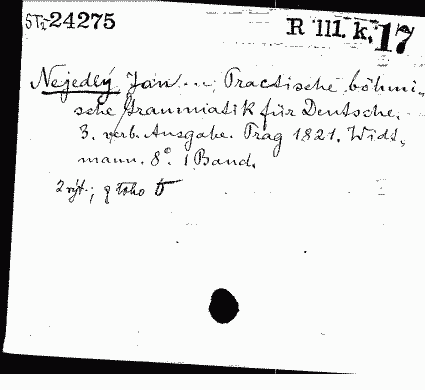 STi 24275
R III. k. 17
Nejedlý Jan ... Practische böhmi-
sche Grammatik für Deutsche.
3. verb. Ausgabe. Prag 1821. Widt-
mann. 8°. 1 Band.
2 rýt.; z toho